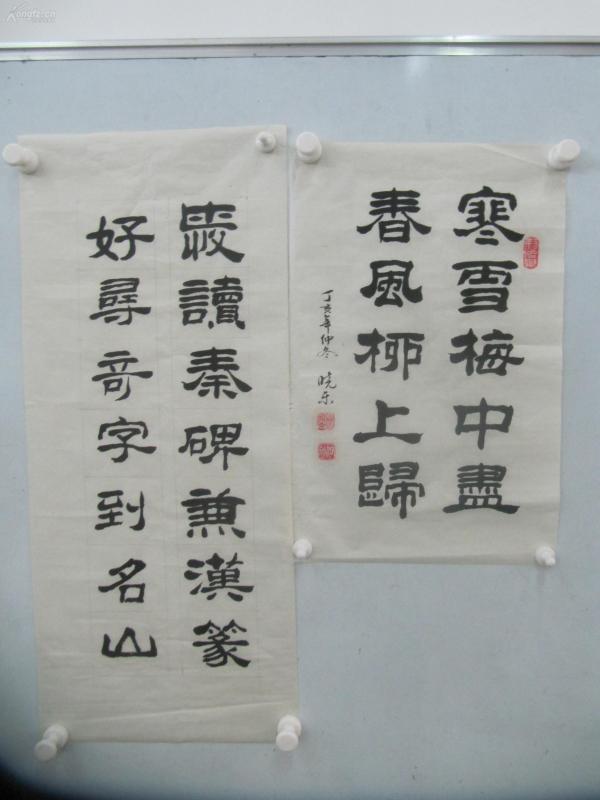 Kongfz.cn
寒雪梅中盡
春風柳上歸
丁亥年仲冬 晓
愛讀秦碑兼漢篆
好尋竒字到名山